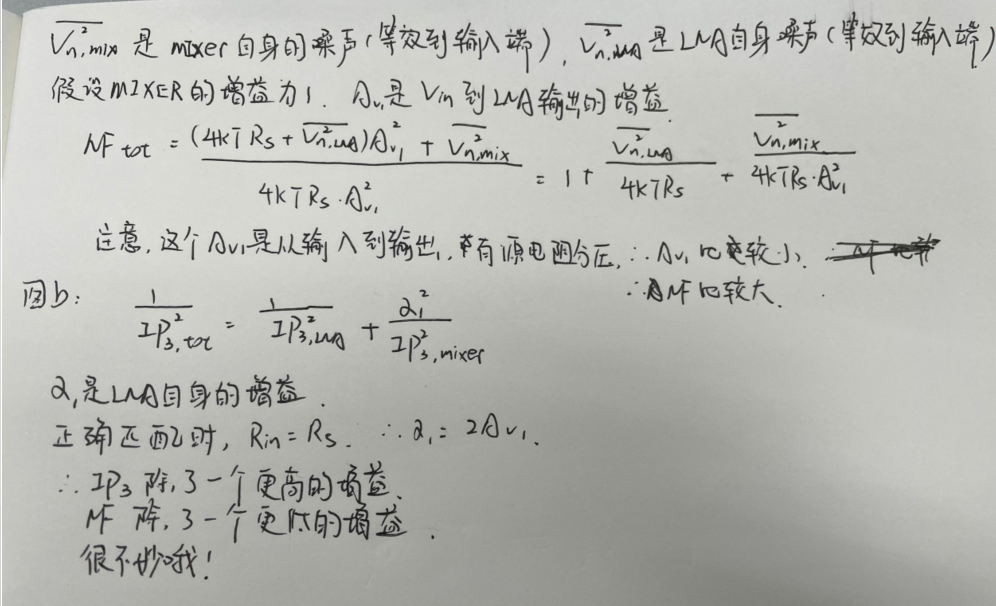 V²n,mix 是 mixer 自身的噪声(等效到输入端), V²n,LNA 是LNA自身噪声(等效到输入端)
假设MIXER的增益为1. Av₁是 Vin 到LNA输出的增益.
NFtot = (4kTRs + V²n,LNA)A²v₁ + V²n,mix / 4kTRs·A²v₁ = 1 + V²n,LNA / 4kTRs + V²n,mix / 4kTRs·A²v₁
注意,这个Av₁是从输入到输出,有源电阻分压,∴Av₁比较小.
∴NF比较大.
图b: 1/IP²3,tot = 1/IP²3,LNA + α₁²/IP²3,mixer
α₁是LNA自身的增益.
正确匹配时, Rin = Rs. ∴ α₁ = 2Av₁.
∴ IP₃ 除了一个更高的增益.
NF 除了一个更低的增益.
很不妙哦!